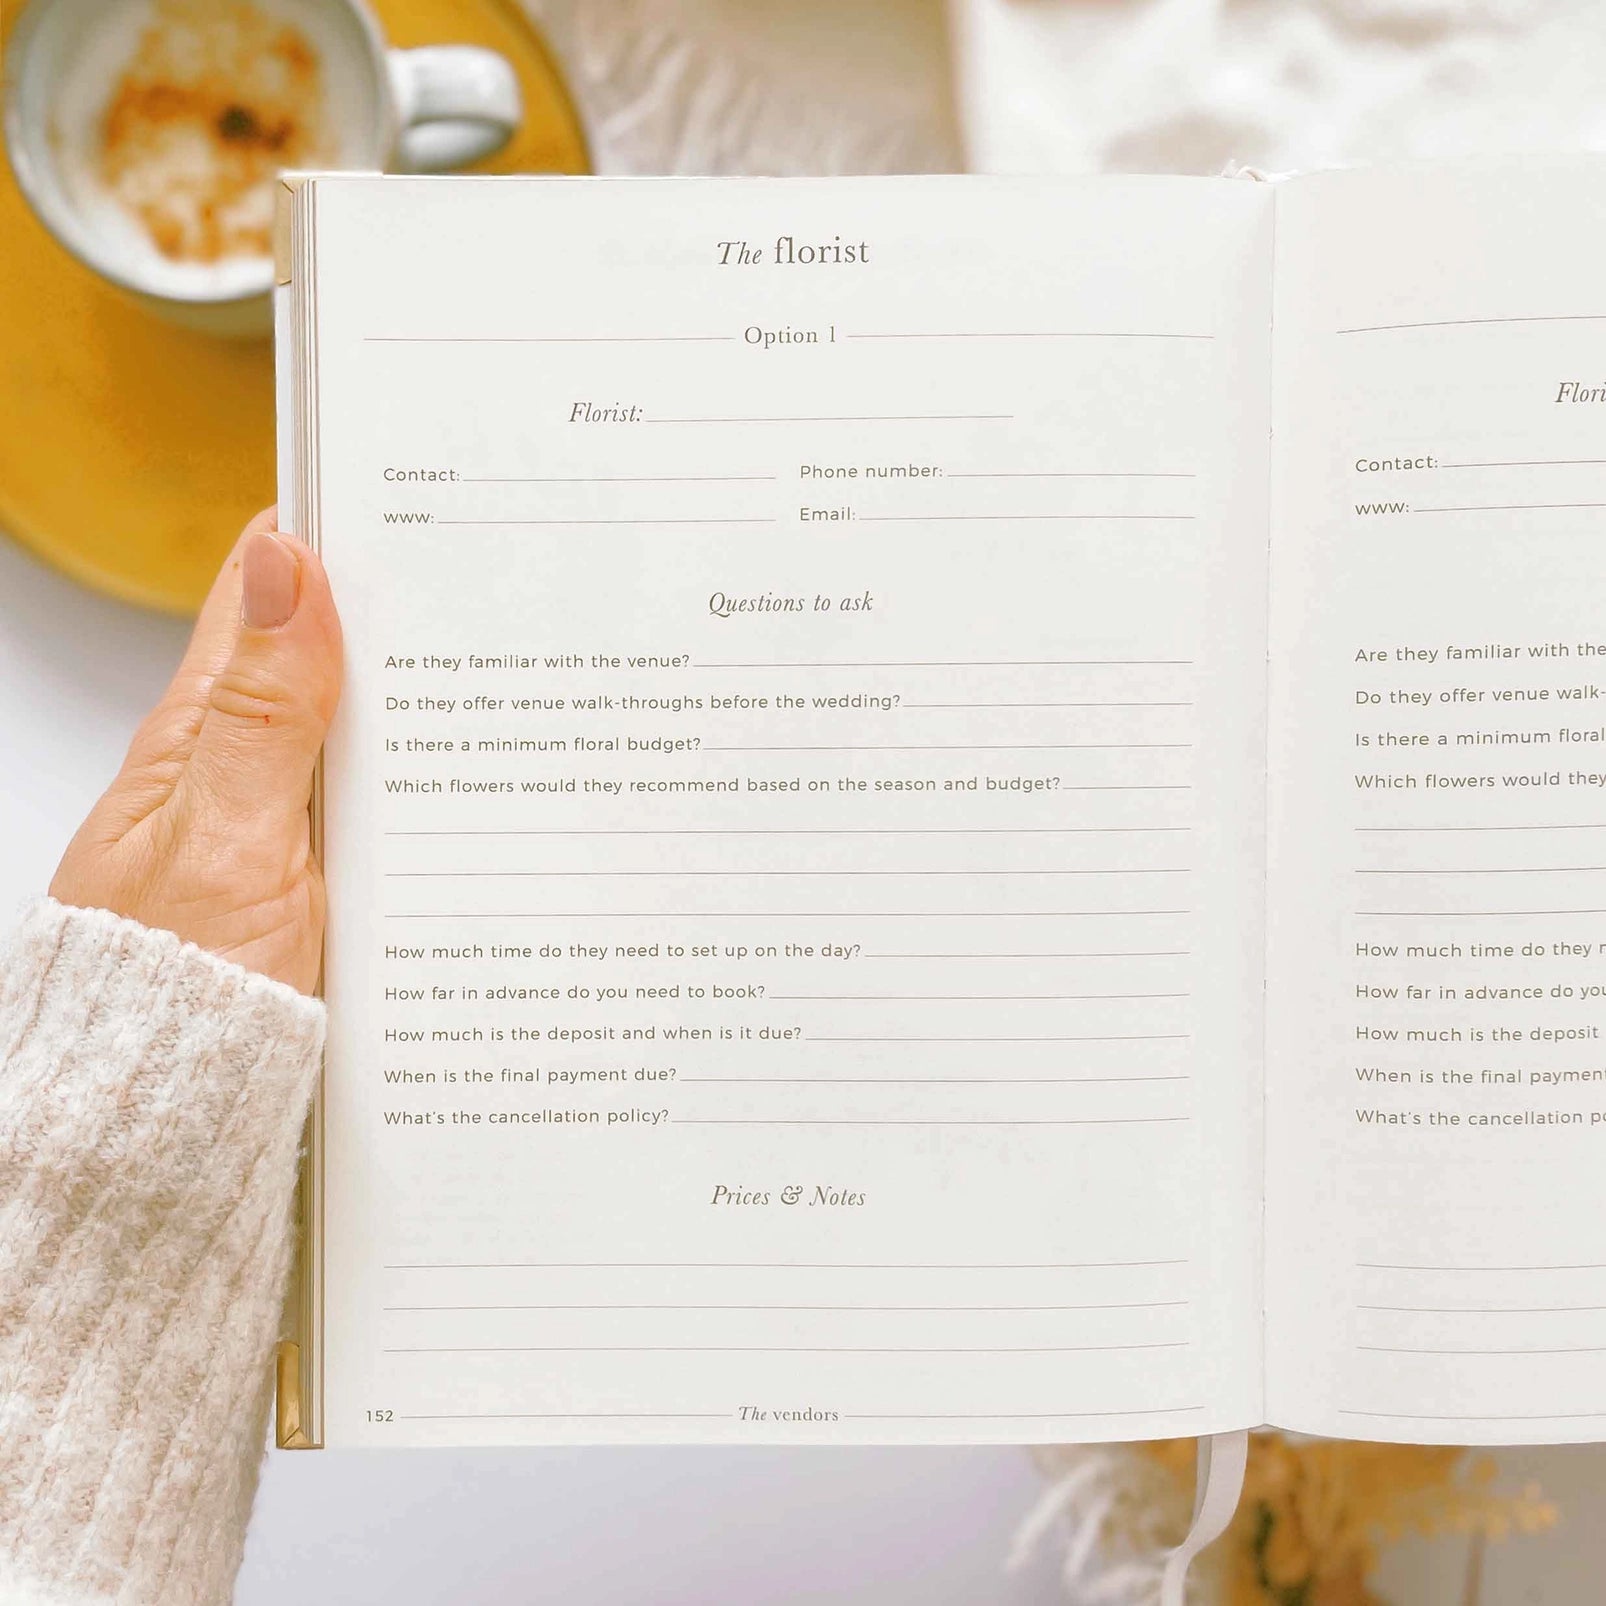 The florist
Option 1
Florist:
Contact: Phone number:
www: Email:
Questions to ask
Are they familiar with the venue?
Do they offer venue walk-throughs before the wedding?
Is there a minimum floral budget?
Which flowers would they recommend based on the season and budget?
How much time do they need to set up on the day?
How far in advance do you need to book?
How much is the deposit and when is it due?
When is the final payment due?
What's the cancellation policy?
Prices & Notes
152
The vendors
Contact:
www:
Are they familiar with the
Do they offer venue walk-
Is there a minimum floral
Which flowers would they
How much time do they
How far in advance do you
How much is the deposit
When is the final payment
What's the cancellation